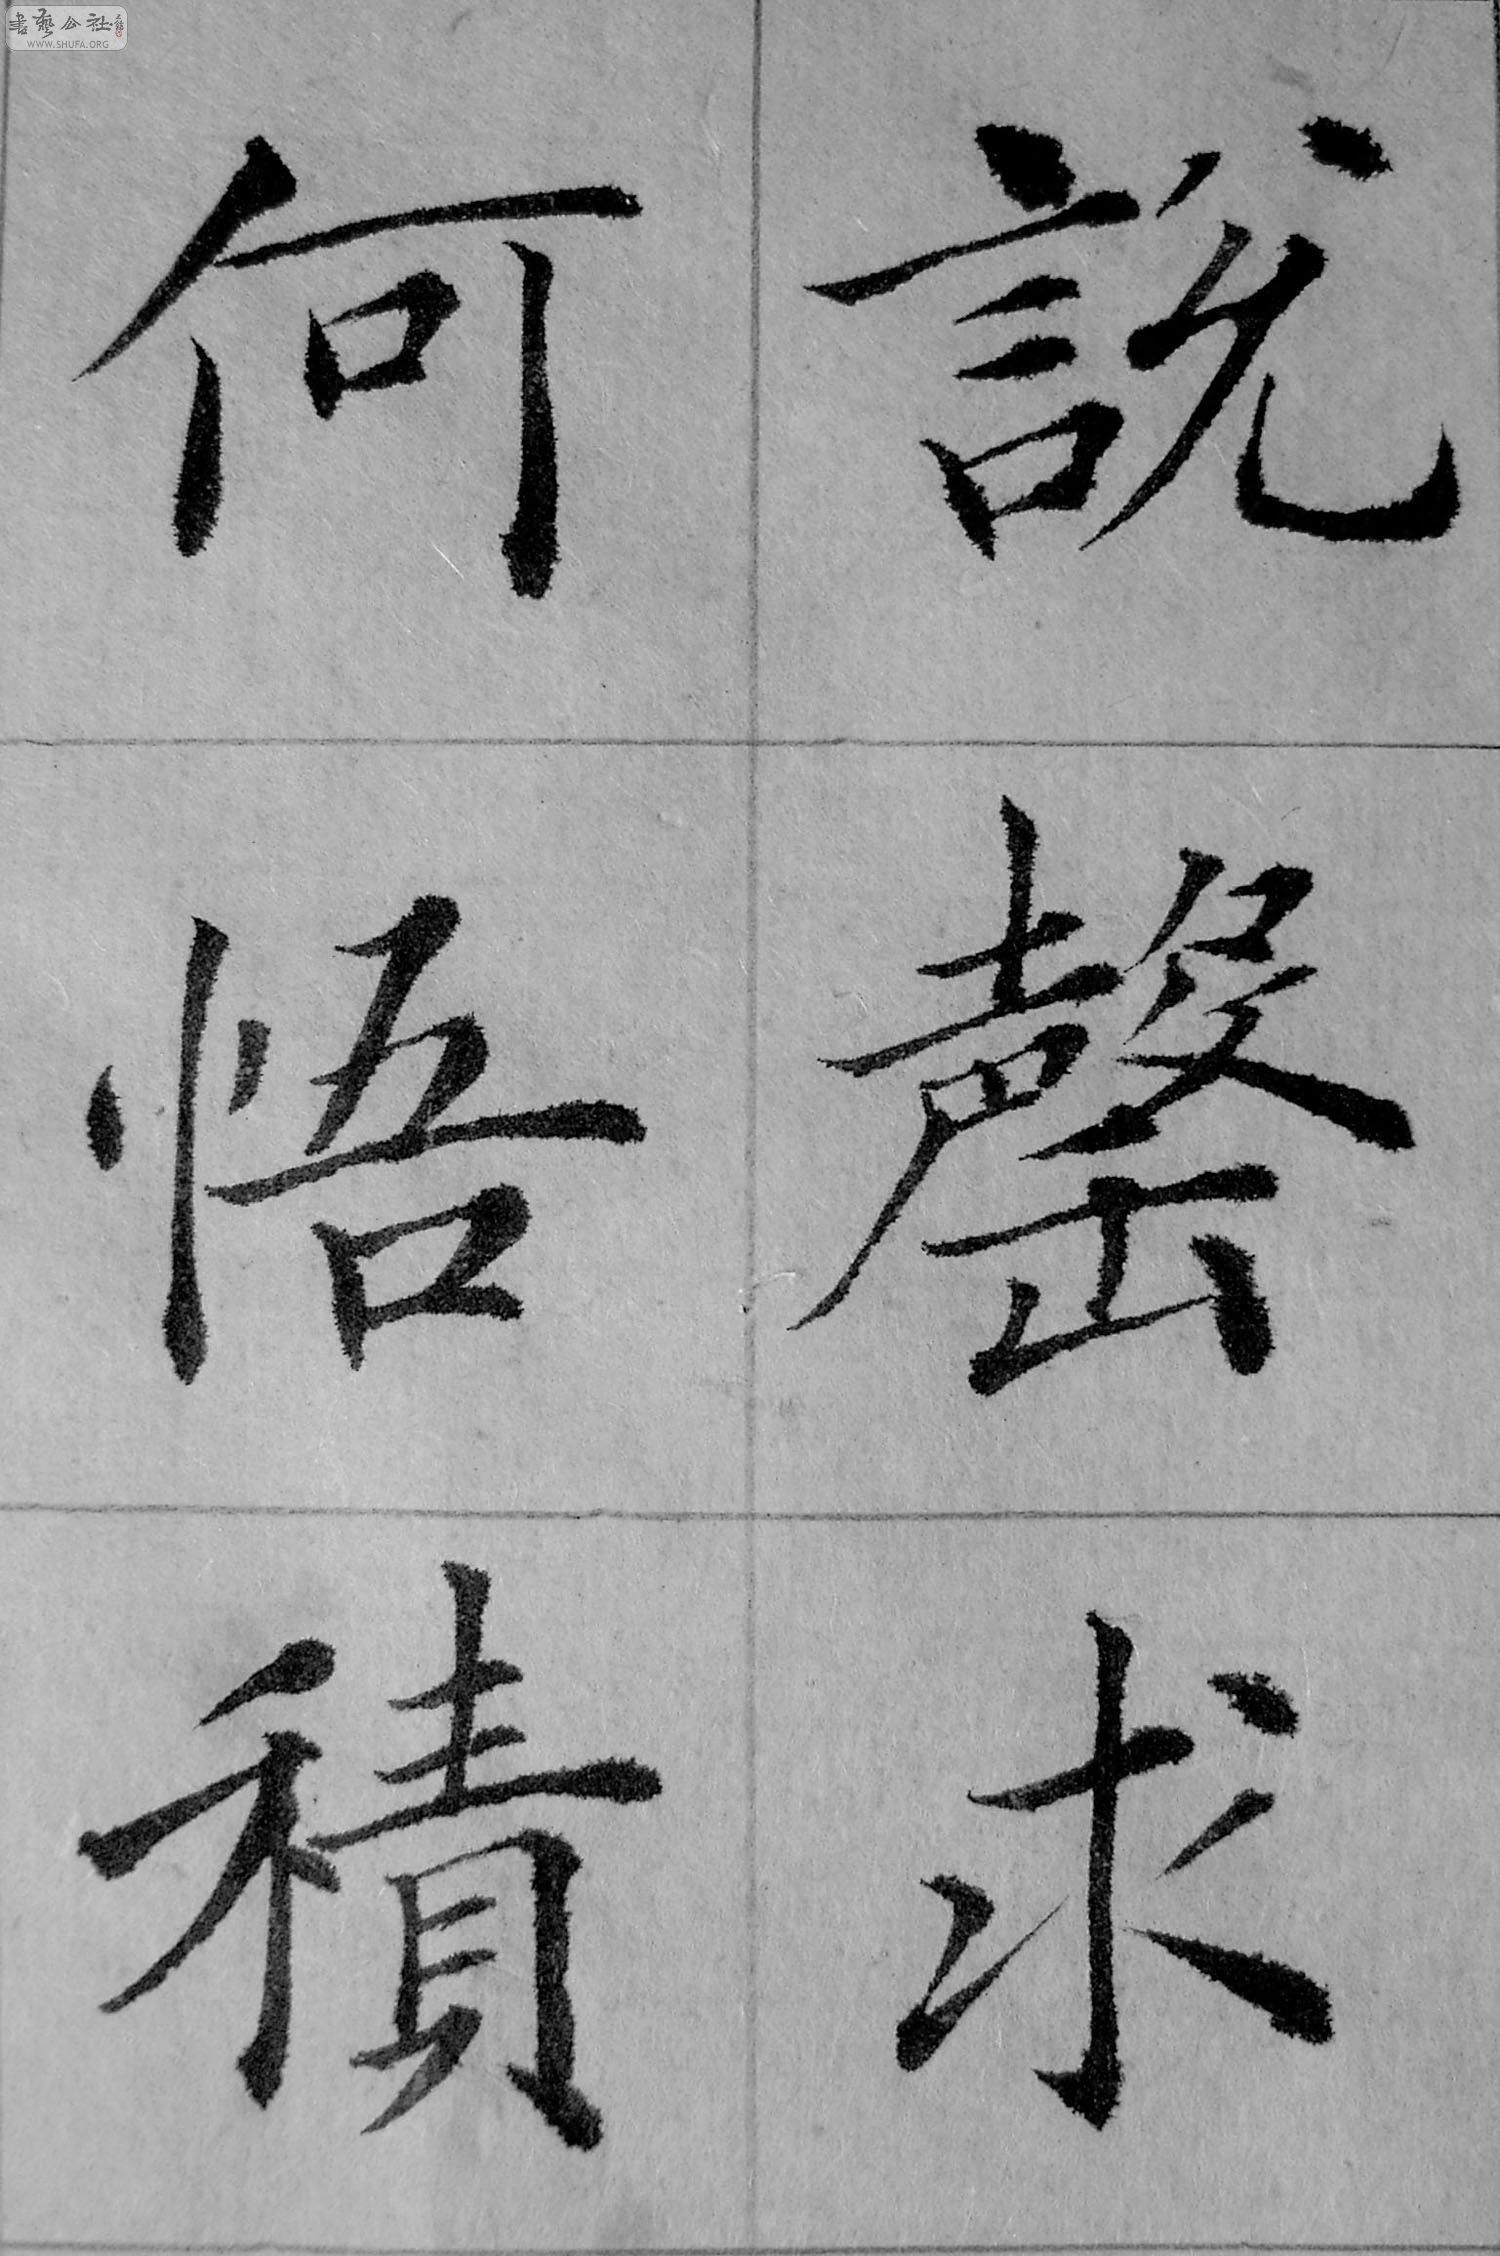 書藝公社
WWW.SHUFA.ORG
說罄求
何悟積